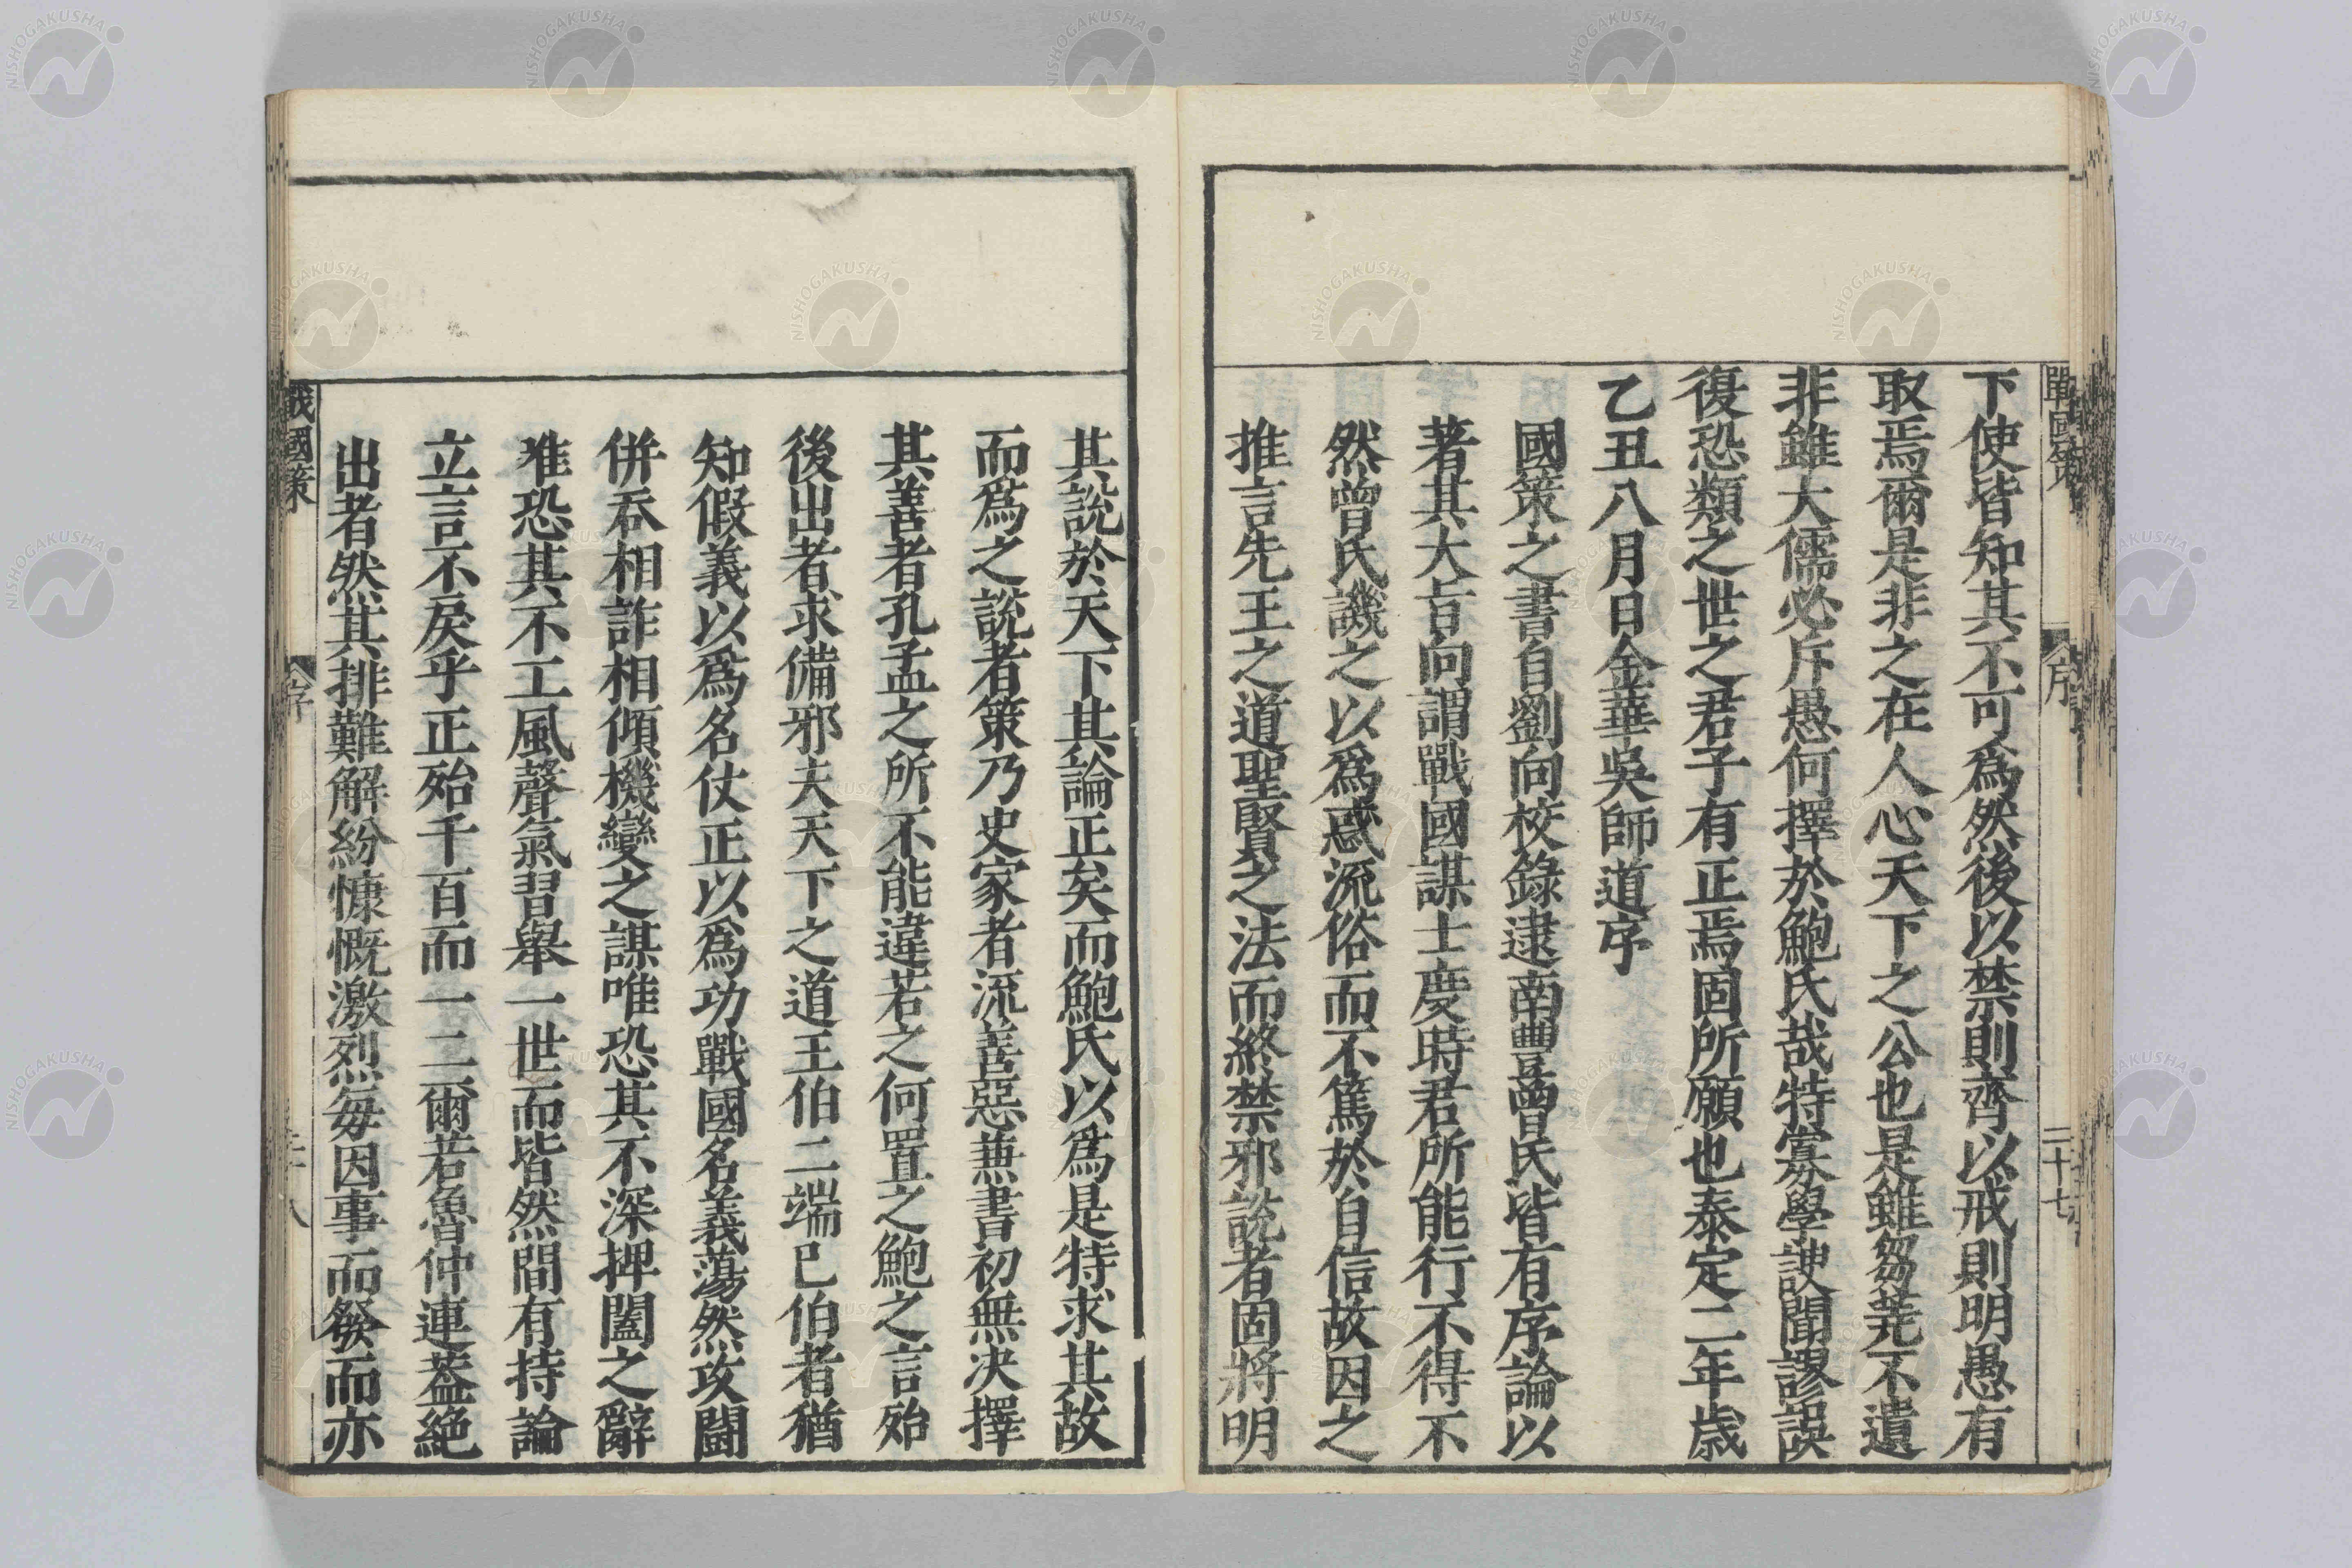 戰國策 序 二十七
下使皆知其不可爲然後以禁則齊以戒則明愚有
取焉爾是非之在人心天下之公也是雖芻蕘不遺
非雖大儒必斥愚何擇於鮑氏哉特寡學謏聞謬誤
復恐類之世之君子有正焉固所願也泰定二年歳
乙丑八月日金華吳師道序
國策之書自劉向校錄逮南豐曾氏皆有序論以
著其大旨向謂戰國謀士度時君所能行不得不
然曾氏譏之以爲惑流俗而不篤於自信故因之
推言先王之道聖賢之法而終禁邪說者固將明
其說於天下其論正矣而鮑氏以爲是特求其故
而爲之說者策乃史家者流善惡兼書初無決擇
其善者孔孟之所不能違若之何置之鮑之言殆
後出者求備邪夫天下之道王伯二端已伯者猶
知假義以爲名仗正以爲功戰國名義蕩然攻鬪
併吞相詐相傾機變之謀唯恐其不深捭闔之辭
唯恐其不工風聲氣習舉一世而皆然間有持論
立言不戾乎正殆千百而一二爾若魯仲連蓋絕
出者然其排難解紛慷慨激烈每因事而發而亦
戰國策 序 二十八
NISHOGAKUSHA